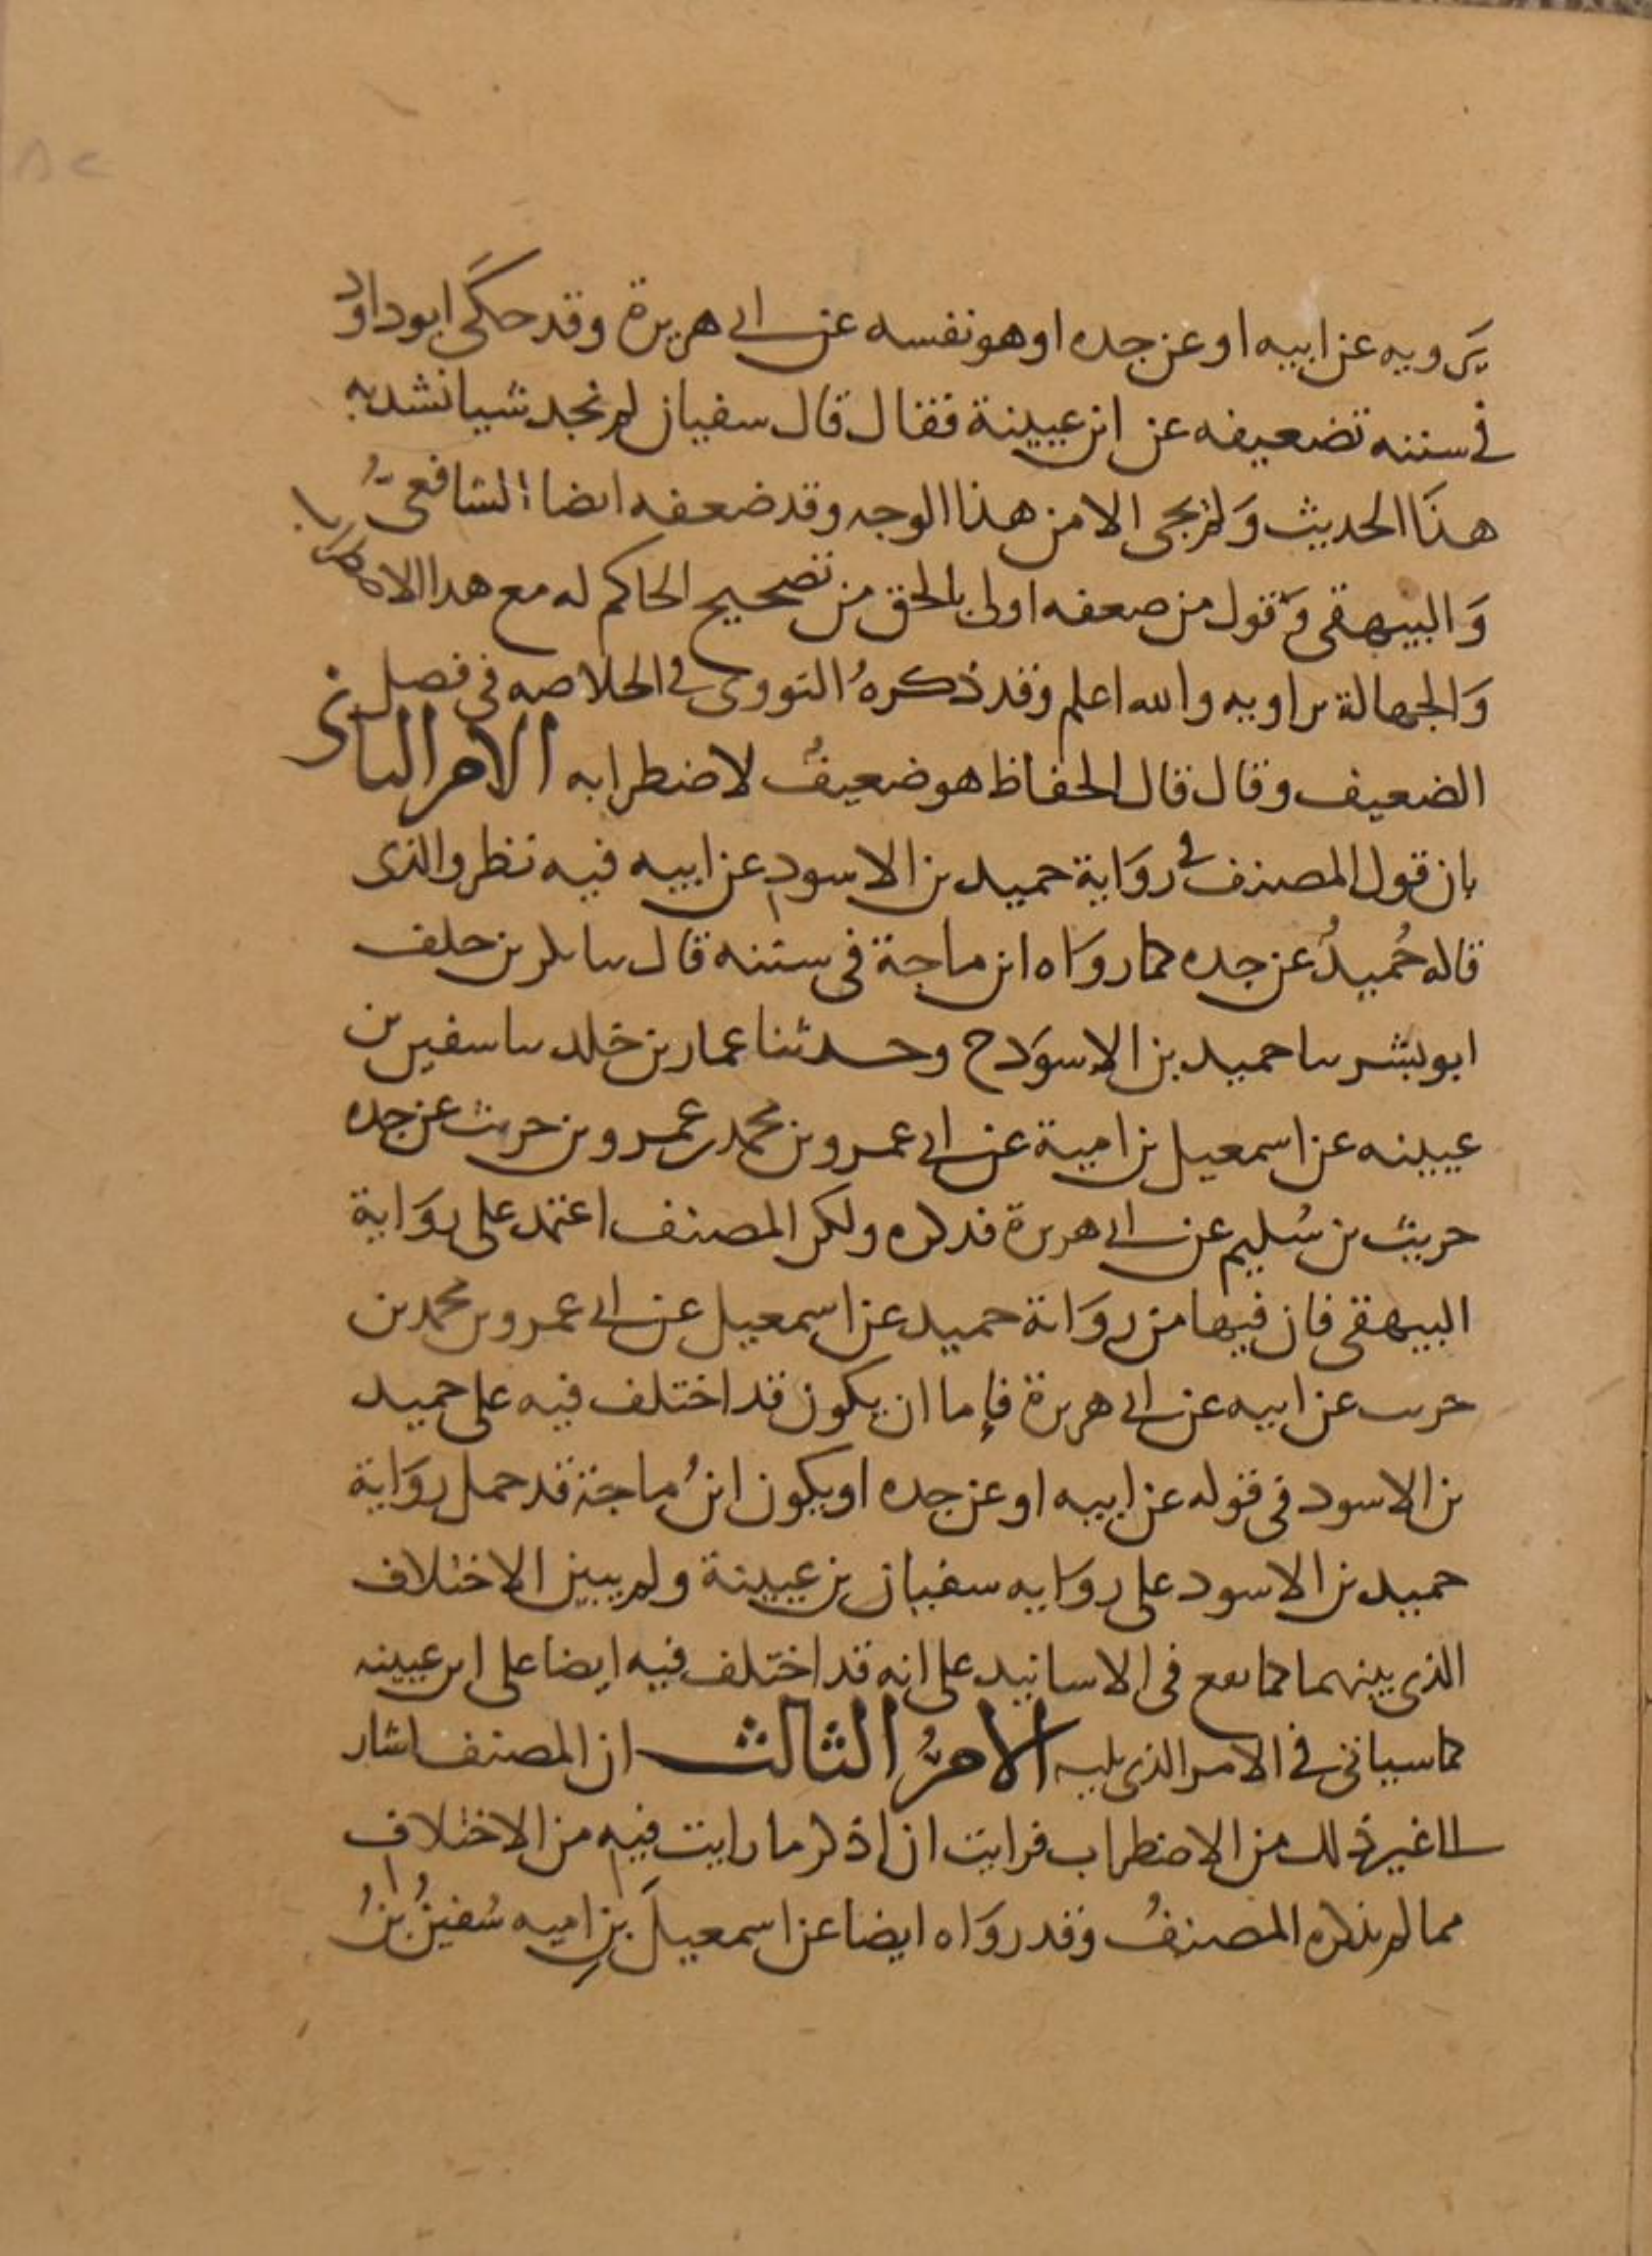 يَرويه عن ابيه او عن جده او هو نفسه عن ابى هريرة وقد حكَى ابو داود
فى سننه تضعيفه عن ابن عيينة فقال قال سفيان لم نجد شيا نشد به
هذَا الحديث وَلم يجى الا من هذا الوجه وقد ضعفه ايضا الشافعىُّ
وَالبيهقى وَقول من ضعفه اولى بالحق من تصحيح الحاكم له مع هدا الاضطراب
وَالجهالة براويه والله اعلم وقد ذكرهُ النووى فى الخلاصه فى فصل
الضعيف وقال قال الحفاظ هو ضعيفٌ لاضطرابه الامر الثانى
بان قول المصنف فى روَاية حميد بن الاسود عن ابيه فيه نظر والذى
قاله حُميدٌ عن جده كما روَاه ابن ماجة فى سننه قال ثنا بكر بن خلف
ابو بشر ثنا حميد بن الاسوَد ح وحدثنا عمار بن خلد ثنا سفين بن
عيينه عن اسمعيل بن امية عن ابى عمرو بن محمد بن عمرو بن حريث عن جده
حريث بن سُليم عن ابى هريرة فدكره ولكن المصنف اعتمد على روَاية
البيهقى فان فيها من روَاية حميد عن اسمعيل عن ابى عمرو بن محمد بن
حريث عن ابيه عن ابى هريرة فإما ان يكون قد اختلف فيه على حميد
بن الاسود فى قوله عن ابيه او عن جده او يكون ابنُ ماجة قد حمل روَاية
حميد بن الاسود على روَايه سفيان بن عيينة ولم يبين الاختلاف
الذى بينهما كما يقع فى الاسانيد على انه قد اختلف فيه ايضا على ابن عيينه
كما سياتى فى الامر الذى يليه الامرُ الثالث ان المصنف اشار
الى غير ذلك من الاضطراب فرايت ان اذكر ما رايت فيه من الاختلاف
مما لم يذكره المصنفُ وقد روَاه ايضا عن اسمعيلَ بنِ اميه سُفينُ بنُ